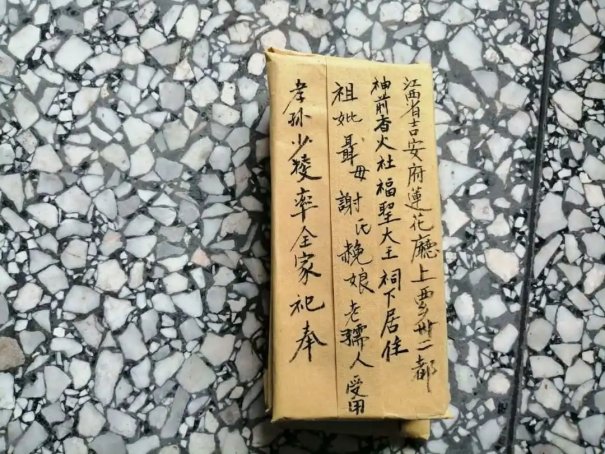 江西省吉安府蓮花廳上卅二都
神前香火社福聖大王祠下居住
祖妣聶母謝氏娘老孺人受用
孝孙少稜率全家祀奉